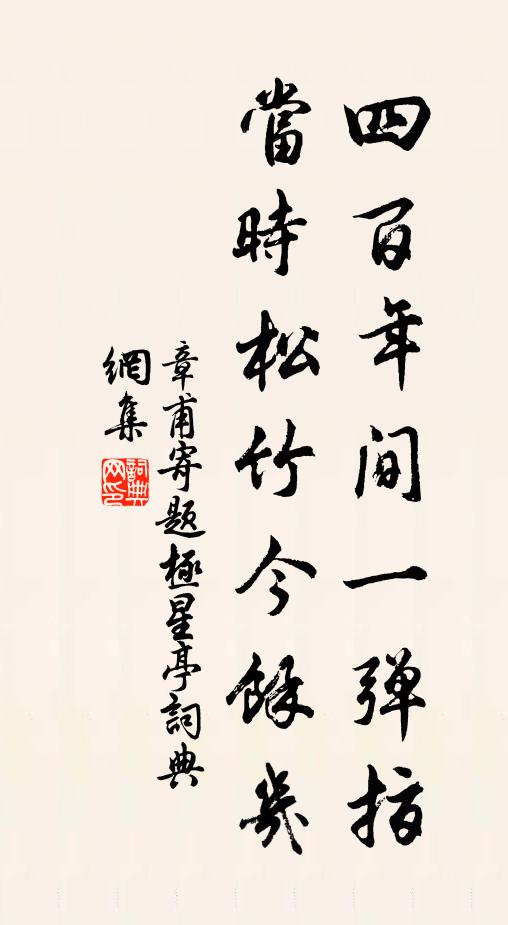 四百年间一弹指
當時松竹今餘幾
章甫寄题極星亭詞典
網集
詞典网印